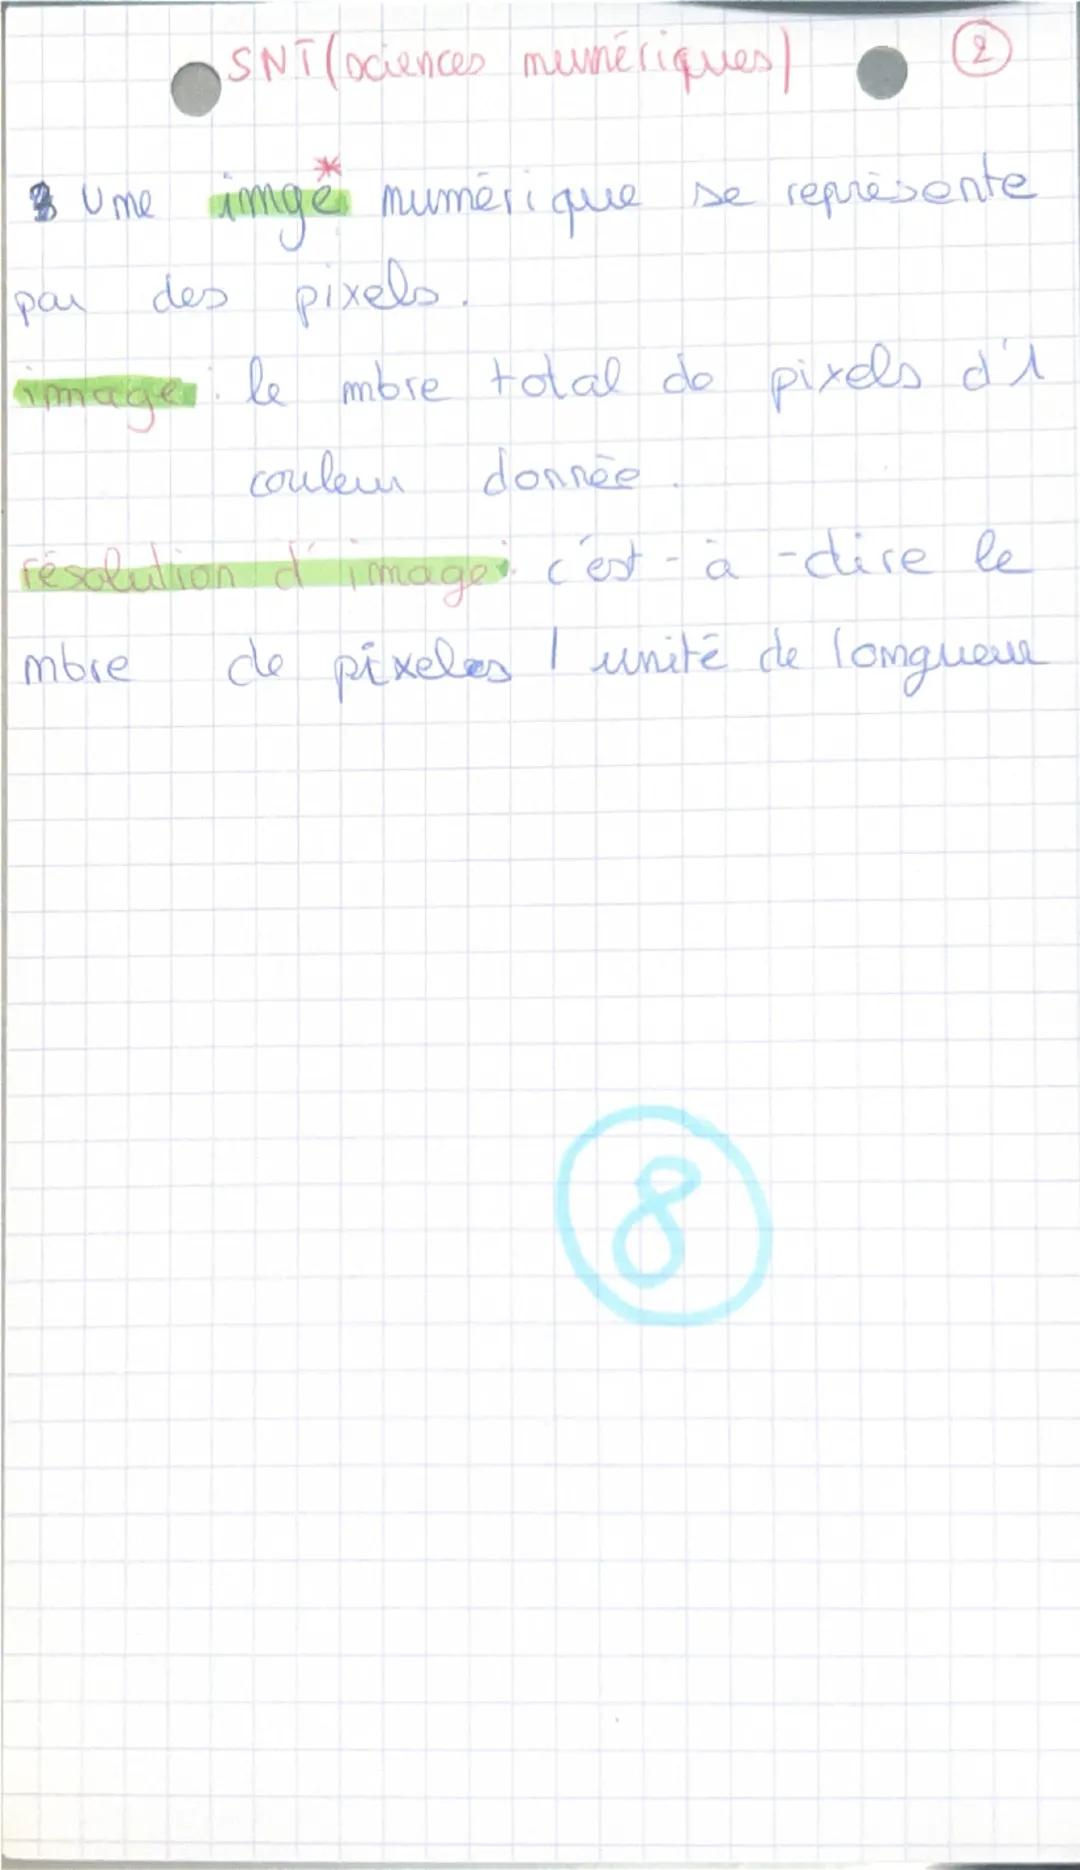 SNT (sciences numériques) 2
Une imge* numérique se représente
par des pixels.
image : le nbre total de pixels d'1
couleur donnée.
résolution d'image : c'est-à-dire le
nbre de pixeles / unité de longueur
8